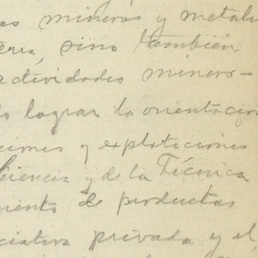 as mineras y metalú
ería, sino también
actividades minero-
lo lograr la orientación
ciones y explotaciones
Ciencia y de la Técnica
miento de productos
ciativa privada y el